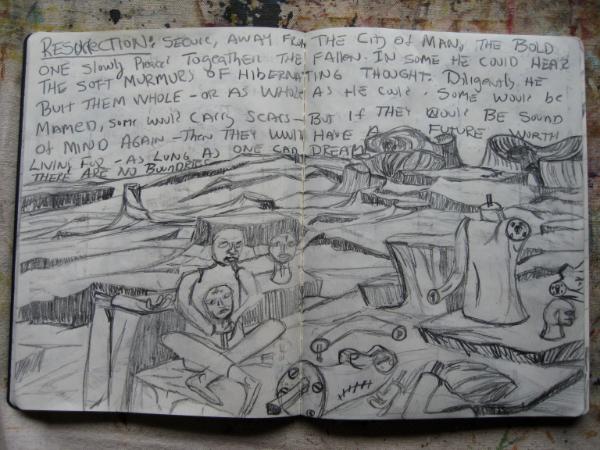 RESURRECTION: SECURE, AWAY FROM THE CITY OF MAN, THE BOLD
ONE SLOWLY PIECED TOGEATHER THE FALLEN. IN SOME HE COULD HEAR
THE SOFT MURMURS OF HIBERNATING THOUGHT. DILIGENTLY HE
BUILT THEM WHOLE - OR AS WHOLE AS HE COULD. SOME WOULD BE
MAIMED, SOME WOULD CARRY SCARS - BUT IF THEY WOULD BE SOUND
OF MIND AGAIN - THEN THEY WOULD HAVE A FUTURE WORTH
LIVING FOR - AS LONG AS ONE CAN DREAM
THERE ARE NO BOUNDRIES